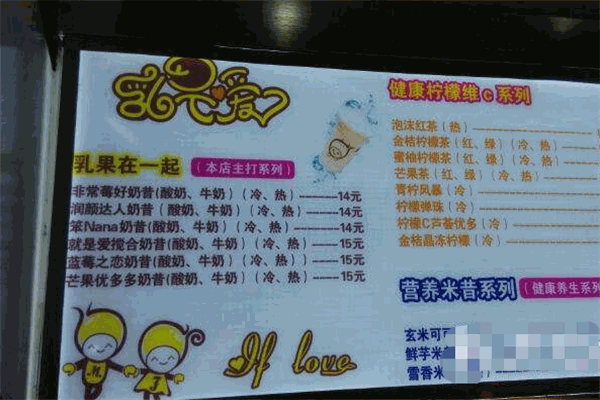 乳果在一起（本店主打系列）
非常莓好奶昔(酸奶、牛奶)（冷、热）-------14元
润颜达人奶昔（酸奶、牛奶）（冷、热）-----14元
笨Nana奶昔(酸奶、牛奶)（冷、热）------14元
就是爱搅合奶昔(酸奶、牛奶)（冷、热）----15元
蓝莓之恋奶昔(酸奶、牛奶)（冷、热））----15元
芒果优多多奶昔(酸奶、牛奶)（冷、热）----15元
If love
M J
健康柠檬维C系列
泡沫红茶（热）
金桔柠檬茶（红、绿）（冷、热）
蜜柚柠檬茶（红、绿）（冷、热）
芒果茶（红、绿）（冷、热）
青柠风暴（冷）
柠檬弹珠（冷）
柠檬C芦荟优多（冷）
金桔晶冻柠檬（冷）
营养米昔系列（健康养生系列
玄米可可
鲜芋米
雪香米